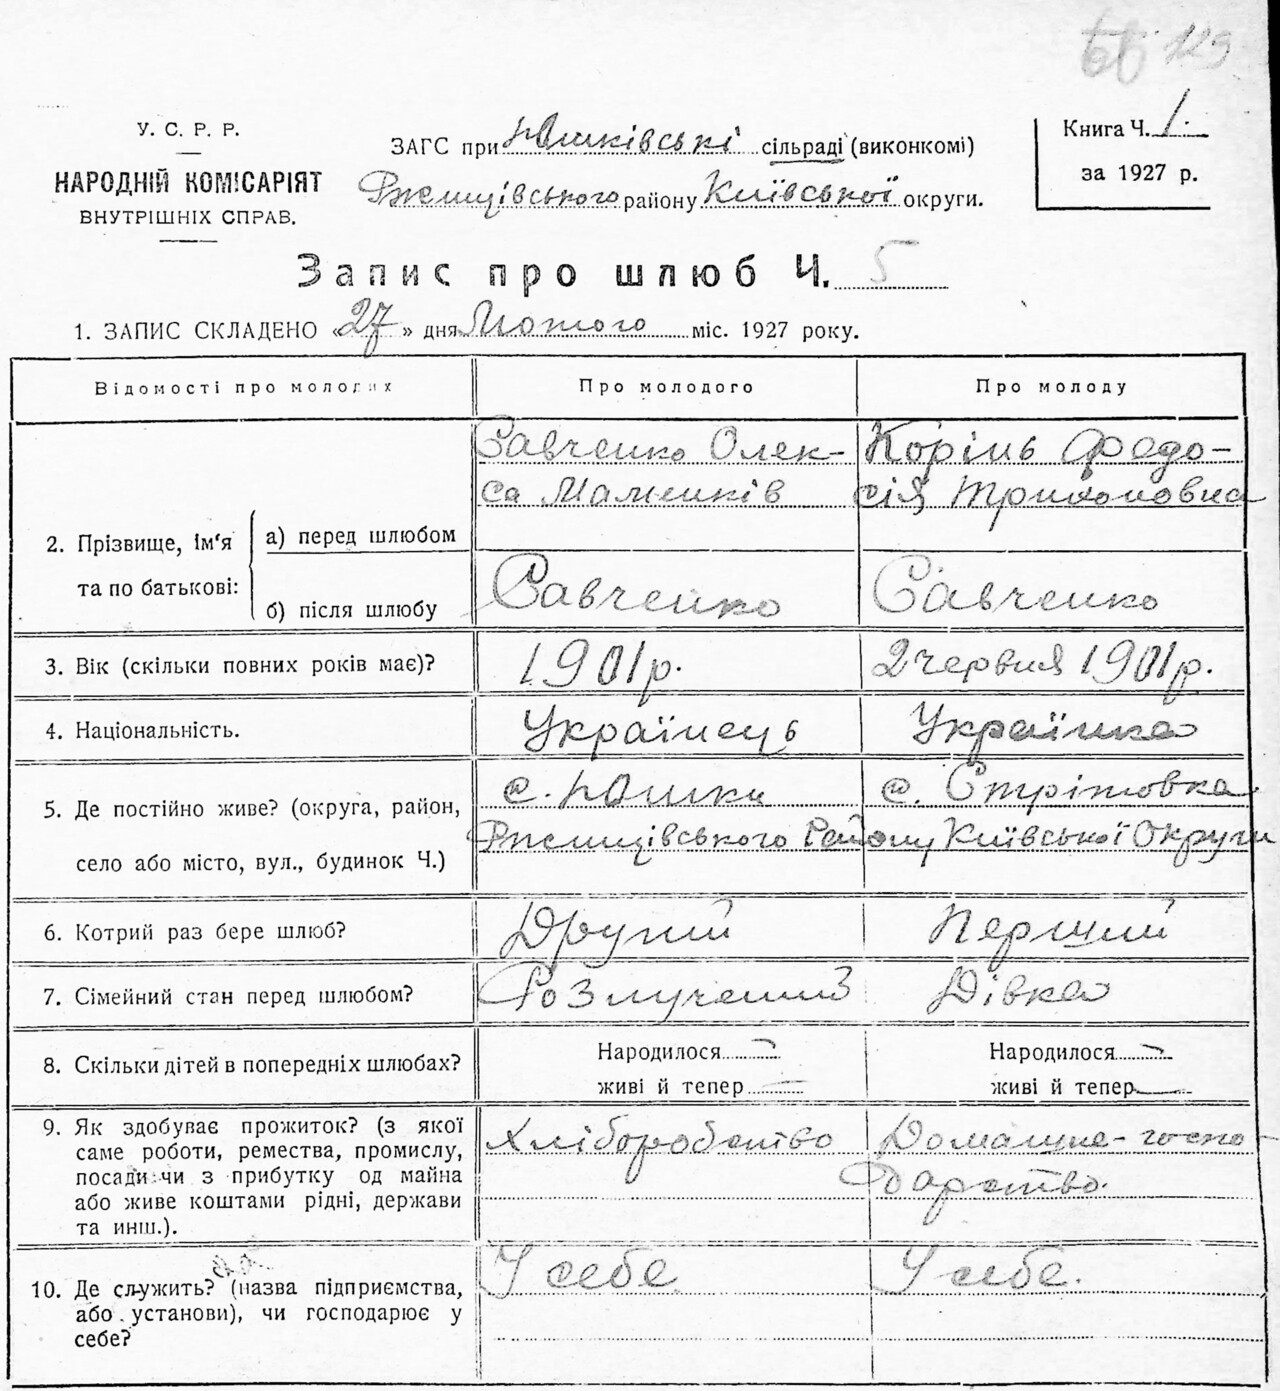 129
У. С. Р. Р.
НАРОДНІЙ КОМІСАРІЯТ
ВНУТРІШНІХ СПРАВ.
ЗАГС при Юшківські сільраді (виконкомі)
Ржищівського району Київської округи.
Книга Ч. 1.
за 1927 р.
Запис про шлюб Ч. 5
1. ЗАПИС СКЛАДЕНО «27» дня Лютого міс. 1927 року.
Відомості про молодих
Про молодого
Про молоду
2. Прізвище, ім'я
та по батькові:
а) перед шлюбом
Савченко Олек-
са
Корінь Федо-
сія
б) після шлюбу
Савченко
Савченко
3. Вік (скільки повних років має)?
1901р.
2 червня 1901р.
4. Національність.
Українець
Українка
5. Де постійно живе? (округа, район,
село або місто, вул., будинок Ч.)
с. Юшки
с. Стрітовка
Ржищівського Району Київської Округи
6. Котрий раз бере шлюб?
Другий
Перший
7. Сімейний стан перед шлюбом?
Розлучений
Дівка
8. Скільки дітей в попередніх шлюбах?
Народилося —
живі й тепер —
Народилося —
живі й тепер —
9. Як здобуває прожиток? (з якої
саме роботи, ремества, промислу,
посади чи з прибутку од майна
або живе коштами рідні, держави
та инш.).
Хліборобство
Домашне-госпо-
дарство.
10. Де служить? (назва підприємства,
або установи), чи господарює у
себе?
У себе
У себе.